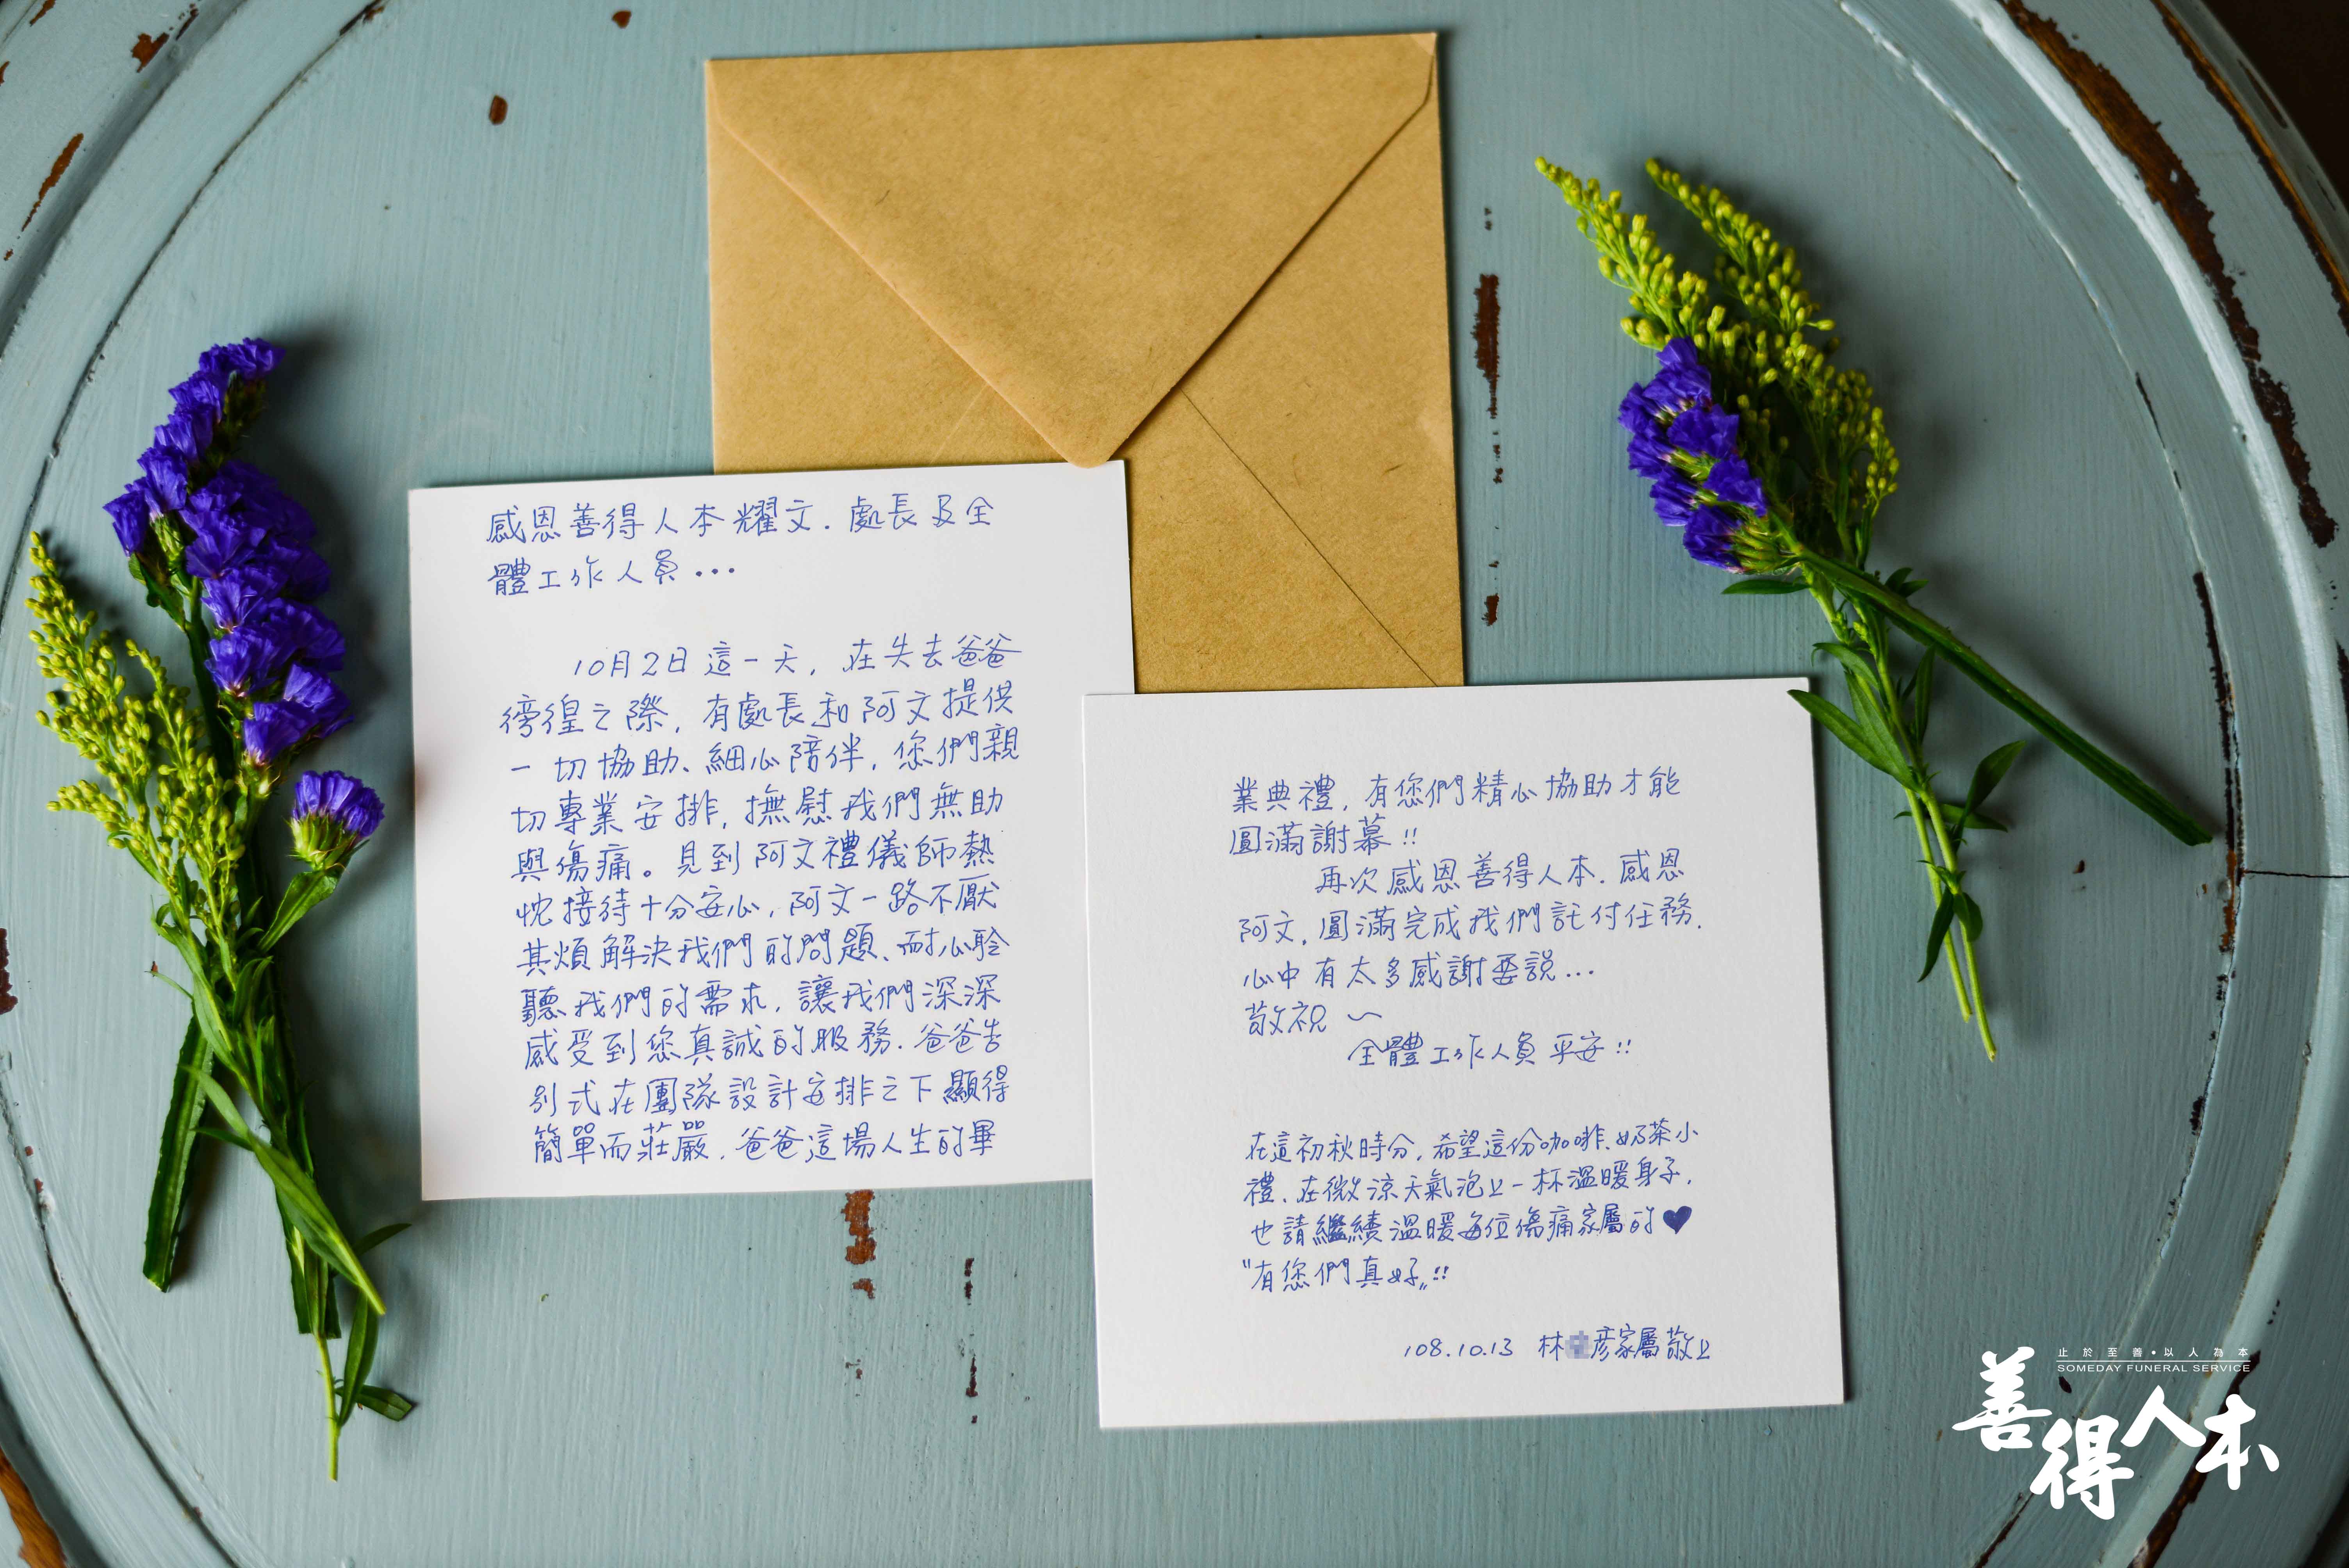 感恩善得人本耀文.處長及全
體工作人員...
10月2日這一天,在失去爸爸
徬徨之際,有處長和阿文提供
一切協助、細心陪伴,您們親
切專業安排,撫慰我們無助
與傷痛。見到阿文禮儀師熱
忱接待十分安心,阿文一路不厭
其煩解決我們的問題、耐心聆
聽我們的需求,讓我們深深
感受到您真誠的服務.爸爸告
別式在團隊設計安排之下顯得
簡單而莊嚴.爸爸這場人生的畢
業典禮,有您們精心協助才能
圓滿謝幕!!
再次感恩善得人本.感恩
阿文,圓滿完成我們託付任務.
心中有太多感謝要說...
敬祝～
全體工作人員平安!!
在這初秋時分,希望這份咖啡、奶茶小
禮、在微涼天氣泡上一杯溫暖身子,
也請繼續溫暖每位傷痛家屬的♥
"有您們真好"!!
108.10.13 林彥家屬敬上
止於至善•以人為本
SOMEDAY FUNERAL SERVICE
善得人本